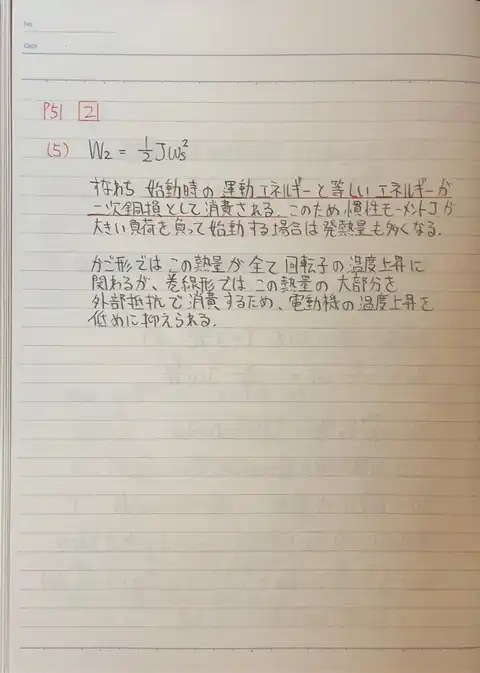 No.
Date
P51 2
(5) W₂ = 1/2 Jωs²
すなわち 始動時の運動エネルギーと等しいエネルギーが
二次銅損として消費される。このため慣性モーメントJが
大きい負荷を負って始動する場合は発熱量も多くなる.
かご形ではこの熱量が全て回転子の温度上昇に
関わるが、巻線形ではこの熱量の大部分を
外部抵抗で消費するため、電動機の温度上昇を
低めに抑えられる.